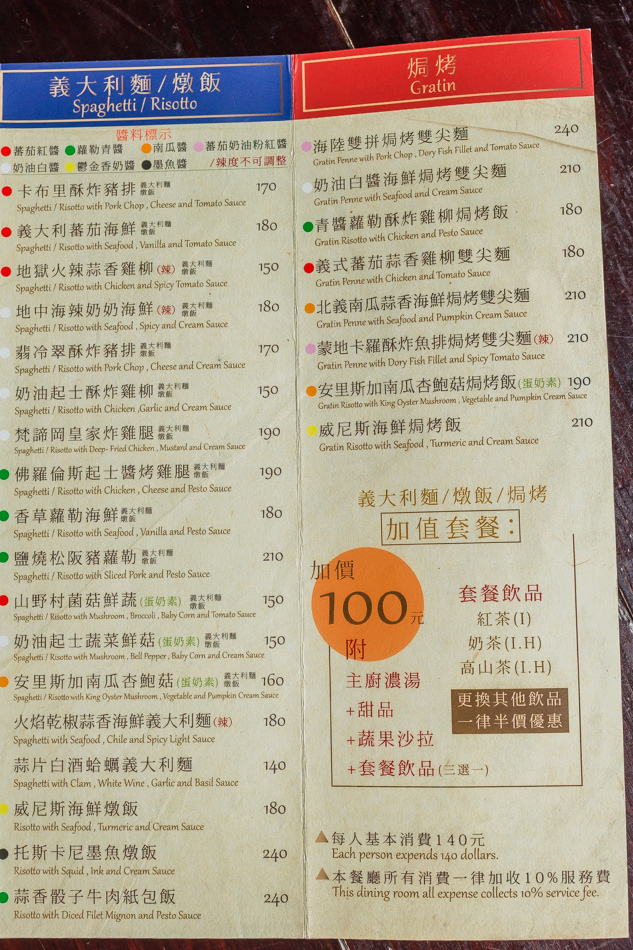 義大利麵/燉飯
Spaghetti / Risotto
醬料標示
蕃茄紅醬 蘿勒青醬 南瓜醬 蕃茄奶油粉紅醬
奶油白醬 鬱金香奶醬 墨魚醬 /辣度不可調整
卡布里酥炸豬排 義大利麵 燉飯 170
Spaghetti / Risotto with Pork Chop , Cheese and Tomato Sauce
義大利蕃茄海鮮 義大利麵 燉飯 180
Spaghetti / Risotto with Seafood , Vanilla and Tomato Sauce
地獄火辣蒜香雞柳(辣) 義大利麵 燉飯 150
Spaghetti / Risotto with Chicken and Spicy Tomato Sauce
地中海辣奶奶海鮮(辣) 義大利麵 燉飯 180
Spaghetti / Risotto with Seafood , Spicy and Cream Sauce
翡冷翠酥炸豬排 義大利麵 燉飯 170
Spaghetti / Risotto with Pork Chop , Cheese and Cream Sauce
奶油起士酥炸雞柳 義大利麵 燉飯 150
Spaghetti / Risotto with Chicken ,Garlic and Cream Sauce
梵諦岡皇家炸雞腿 義大利麵 燉飯 190
Spaghetti / Risotto with Deep- Fried Chicken , Mustard and Cream Sauce
佛羅倫斯起士醬烤雞腿 義大利麵 燉飯 190
Spaghetti / Risotto with Chicken , Cheese and Pesto Sauce
香草蘿勒海鮮 義大利麵 燉飯 180
Spaghetti / Risotto with Seafood , Vanilla and Pesto Sauce
鹽燒松阪豬蘿勒 義大利麵 燉飯 210
Spaghetti / Risotto with Sliced Pork and Pesto Sauce
山野村菌菇鮮蔬(蛋奶素) 義大利麵 燉飯 150
Spaghetti / Risotto with Mushroom , Broccoli , Baby Corn and Tomato Sauce
奶油起士蔬菜鮮菇(蛋奶素) 義大利麵 燉飯 150
Spaghetti / Risotto with Mushroom , Bell Pepper , Baby Corn and Cream Sauce
安里斯加南瓜杏鮑菇(蛋奶素) 義大利麵 燉飯 160
Spaghetti / Risotto with King Oyster Mushroom , Vegetable and Pumpkin Cream Sauce
火焰乾椒蒜香海鮮義大利麵(辣) 180
Spaghetti with Seafood , Chile and Spicy Light Sauce
蒜片白酒蛤蠣義大利麵 140
Spaghetti with Clam , White Wine , Garlic and Basil Sauce
威尼斯海鮮燉飯 180
Risotto with Seafood , Turmeric and Cream Sauce
托斯卡尼墨魚燉飯 240
Risotto with Squid , Ink and Cream Sauce
蒜香骰子牛肉紙包飯 240
Risotto with Diced Filet Mignon and Pesto Sauce
焗烤
Gratin
海陸雙拼焗烤雙尖麵 240
Gratin Penne with Pork Chop , Dory Fish Fillet and Tomato Sauce
奶油白醬海鮮焗烤雙尖麵 210
Gratin Penne with Seafood and Cream Sauce
青醬蘿勒酥炸雞柳焗烤飯 180
Gratin Risotto with Chicken and Pesto Sauce
義式蕃茄蒜香雞柳雙尖麵 180
Gratin Penne with Chicken and Tomato Sauce
北義南瓜蒜香海鮮焗烤雙尖麵 210
Gratin Penne with Seafood and Pumpkin Cream Sauce
蒙地卡羅酥炸魚排焗烤雙尖麵(辣) 210
Gratin Penne with Dory Fish Fillet and Spicy Tomato Sauce
安里斯加南瓜杏鮑菇焗烤飯(蛋奶素) 190
Gratin Risotto with King Oyster Mushroom , Vegetable and Pumpkin Cream Sauce
威尼斯海鮮焗烤飯 210
Gratin Risotto with Seafood , Turmeric and Cream Sauce
義大利麵/燉飯/焗烤
加值套餐：
加價
100元
附
主廚濃湯
+甜品
+蔬果沙拉
+套餐飲品(三選一)
套餐飲品
紅茶(I)
奶茶(I.H)
高山茶(I.H)
更換其他飲品
一律半價優惠
每人基本消費140元
Each person expends 140 dollars.
本餐廳所有消費一律加收10%服務費
This dining room all expense collects 10% service fee.